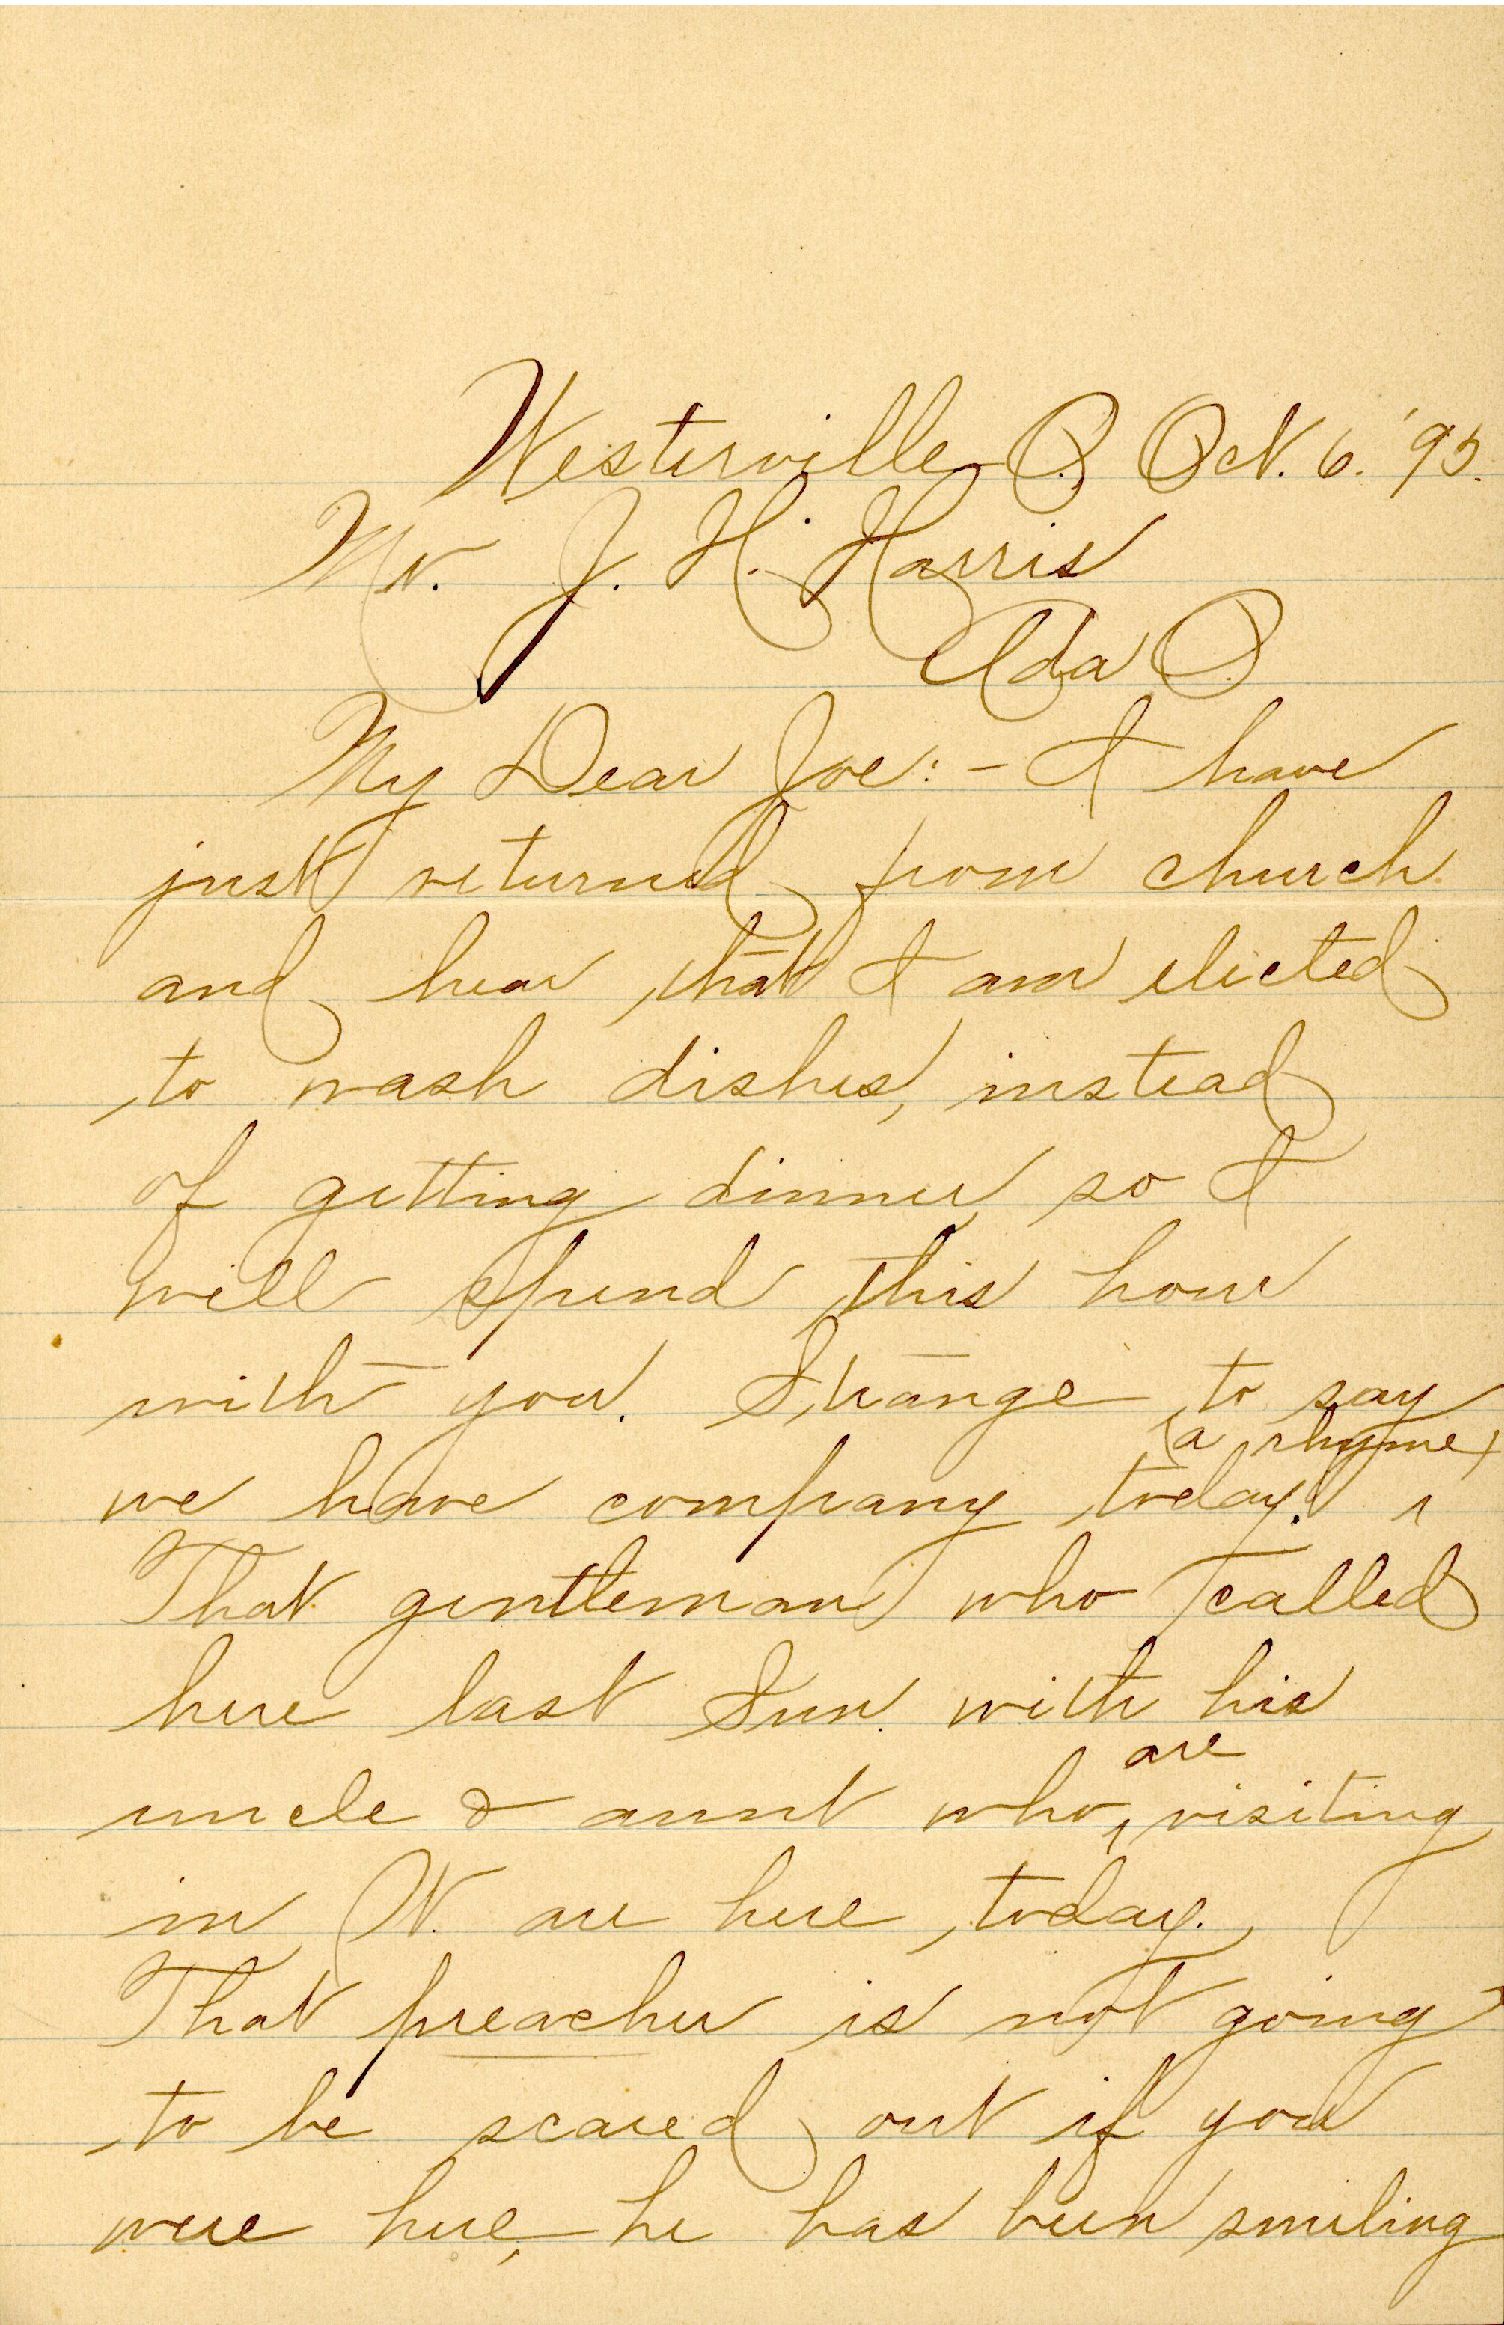 Westerville O. Oct. 6. '95.
Mr. J. H. Harris
Ada O.
My Dear Joe:- I have
just returned from church
and hear that I am elected
to wash dishes, instead
of getting dinner so I
will spend this hour
with you. Strange to say
(a rhyme)
we have company today.
That gentleman who called
here last Sun. with his
are
uncle & aunt who visiting
in W. are here today.
That preacher is not going
to be scared out if you
were here, he has been smiling